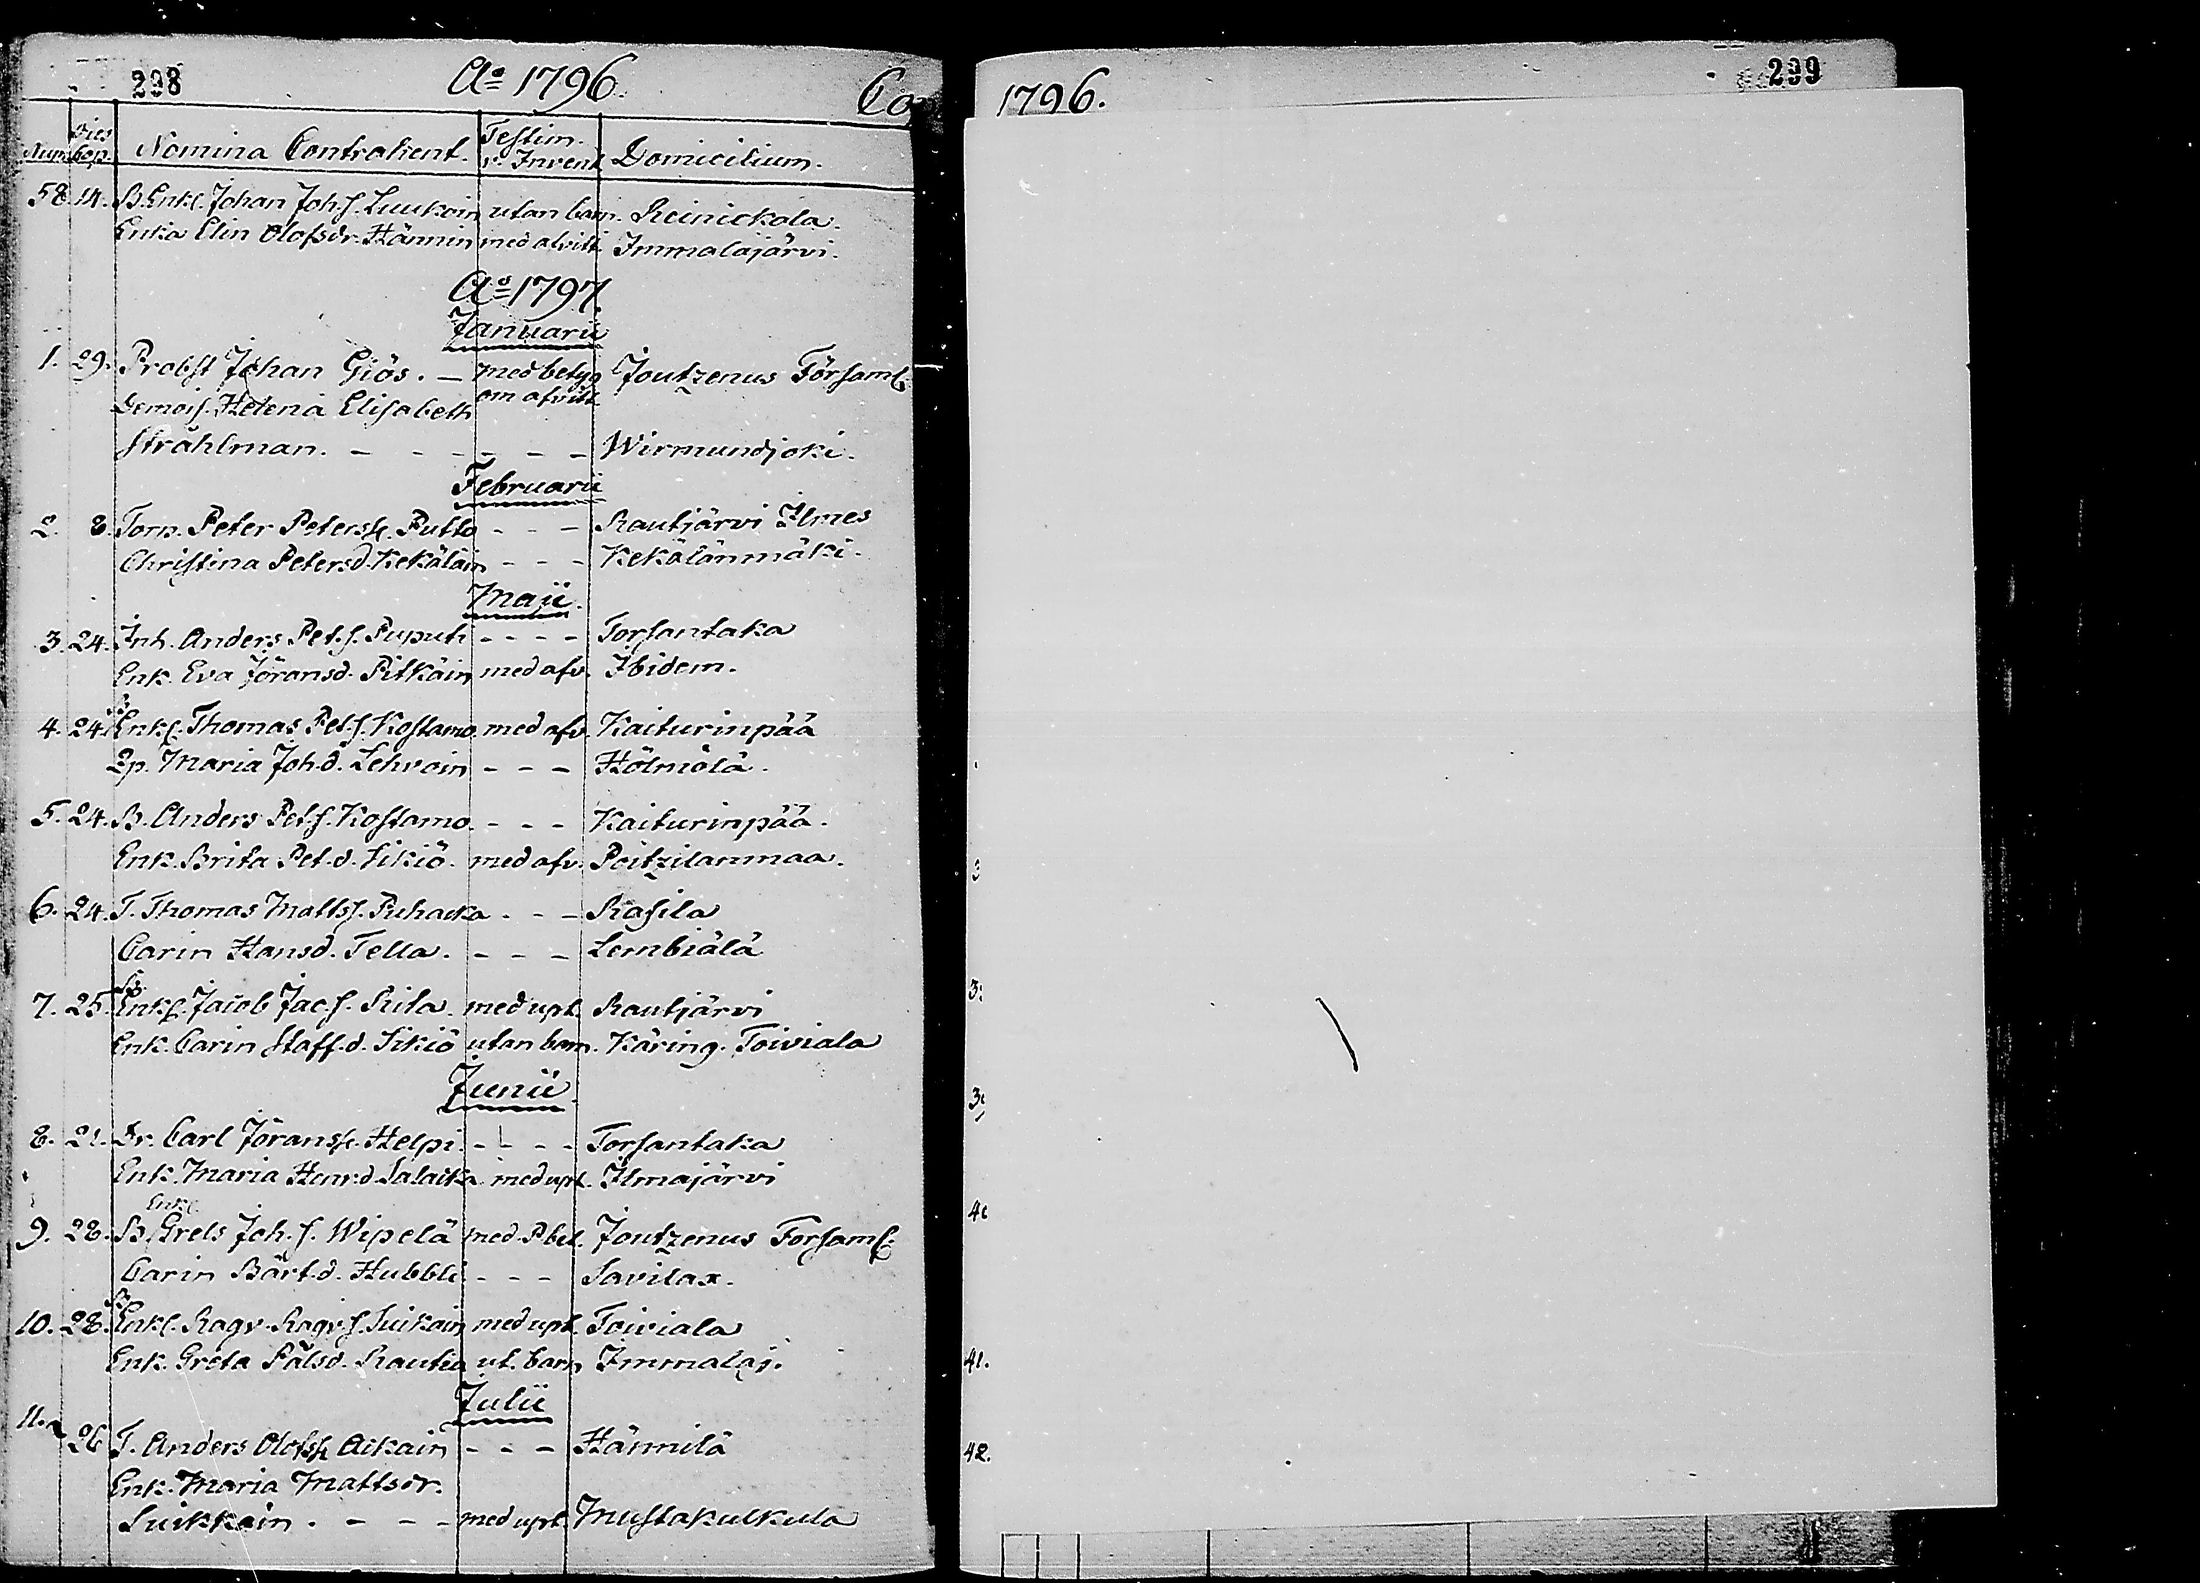 298
Aº 1796.
Co
Num. Dies Cop. Nomina Contrahent. Testim. v. Invent. Domicilium.
58. 14. B. Enkl. Johan Joh.s. Luukoin utan barn. Reinickala.
Enka Elin Olofsdr. Hännin med afvitt. Immalajärvi.
Aº 1797.
Januarii
1. 29. Probst Johan Giös. — med betyg om afvitt. Joutzenus Församl.
Demois. Helena Elisabeth
Stråhlman. - - - - - Wirmundjoki.
Februarii
2. 8. Torp. Peter Peterss. Putto - - - Rautjärvi Ilmes
Christina Petersd. Kekäläin - - - Kekälänmäki.
Maji.
3. 24. Inh. Anders Pet.s. Puputi - - - - Torsantaka
Enk. Eva Jöransd. Pitkäin med afv. Ibidem.
4. 24. B. Enkl. Thomas Pet.s. Kostamo. med afv. Kaiturinpää
Pp. Maria Joh.d. Lehvoin - - - Hölmölä.
5. 24. B. Anders Pet.s. Kostamo. - - - Kaiturinpää.
Enk. Brita Pet.d. Sikiö. med afv. Poitzilanmaa.
6. 24. T. Thomas Mattss. Puhacka - - - Rasila
Carin Hansd. Tella. - - - Lembiälä
7. 25. B. Enkl. Jacob Jac.s. Rita. med upt. Rautjärvi
Enk. Carin Staff.d. Sikiö utan barn. Käring. Toiviala
Junii.
8. 21. Dr. Carl Jöranss. Helpi - - - - Torsantaka
Enk. Maria Henr.d. Salacka med upt. Ilmajärvi
Enkl.
9. 28. B. Grels Joh.s. Wipelä med Pbet. Joutzenus Forsaml.
Carin Bärt.d. Hubbli - - - Savilax.
10. 28. B. Enkl. Ragv. Ragv.s. Suikain med upt. Toiviala
Enk. Greta Pålsd. Rautia ut. barn Immalaj.
Julii
11. 26 T. Anders Olofss. Aikain - - - Hännilä
Enk. Maria Mattsdr.
Suikkain. - - - med upt. Mustakulkula
1796.
299
41.
42.